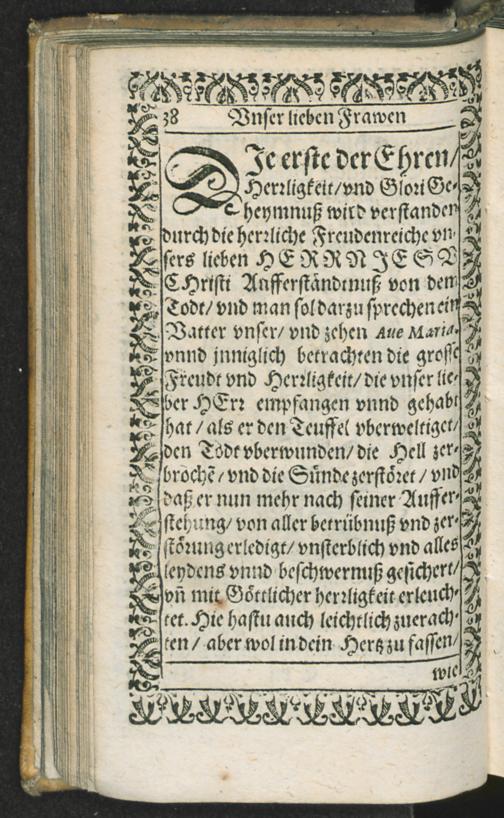 38 Vnser lieben Frawen
DJe erste der Ehren/
Herrligkeit/vnd Glori Ge-
heymnuß wird verstanden
durch die herrliche Freudenreiche vn-
sers lieben HERRN JESV
CHristi Aufferständtnuß von dem
Todt/ vnd man sol darzu sprechen ein
Vatter vnser/ vnd zehen Aue Maria.
vnnd jnniglich betrachten die grosse
Freudt vnd Herrligkeit/ die vnser lie-
ber HErr empfangen vnnd gehabt
hat/ als er den Teuffel vberweltiget/
den Tödt vberwunden/ die Hell zer-
brochẽ/ vnd die Sünde zerstöret/ vnd
daß er nun mehr nach seiner Auffer-
stehung/ von aller betrübnuß vnd zer-
störung erledigt/ vnsterblich vnd alles
leydens vnnd beschwernuß gesichert/
vñ mit Göttlicher herrligkeit erleuch-
tet. Hie hastu auch leichtlich zuerach-
ten/ aber wol in dein Hertz zu fassen/
wie